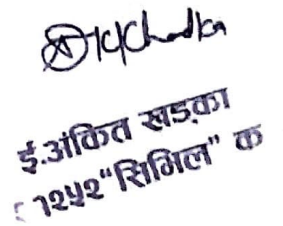 ई.अंकित खड्का
१२५२“सिभिल” क